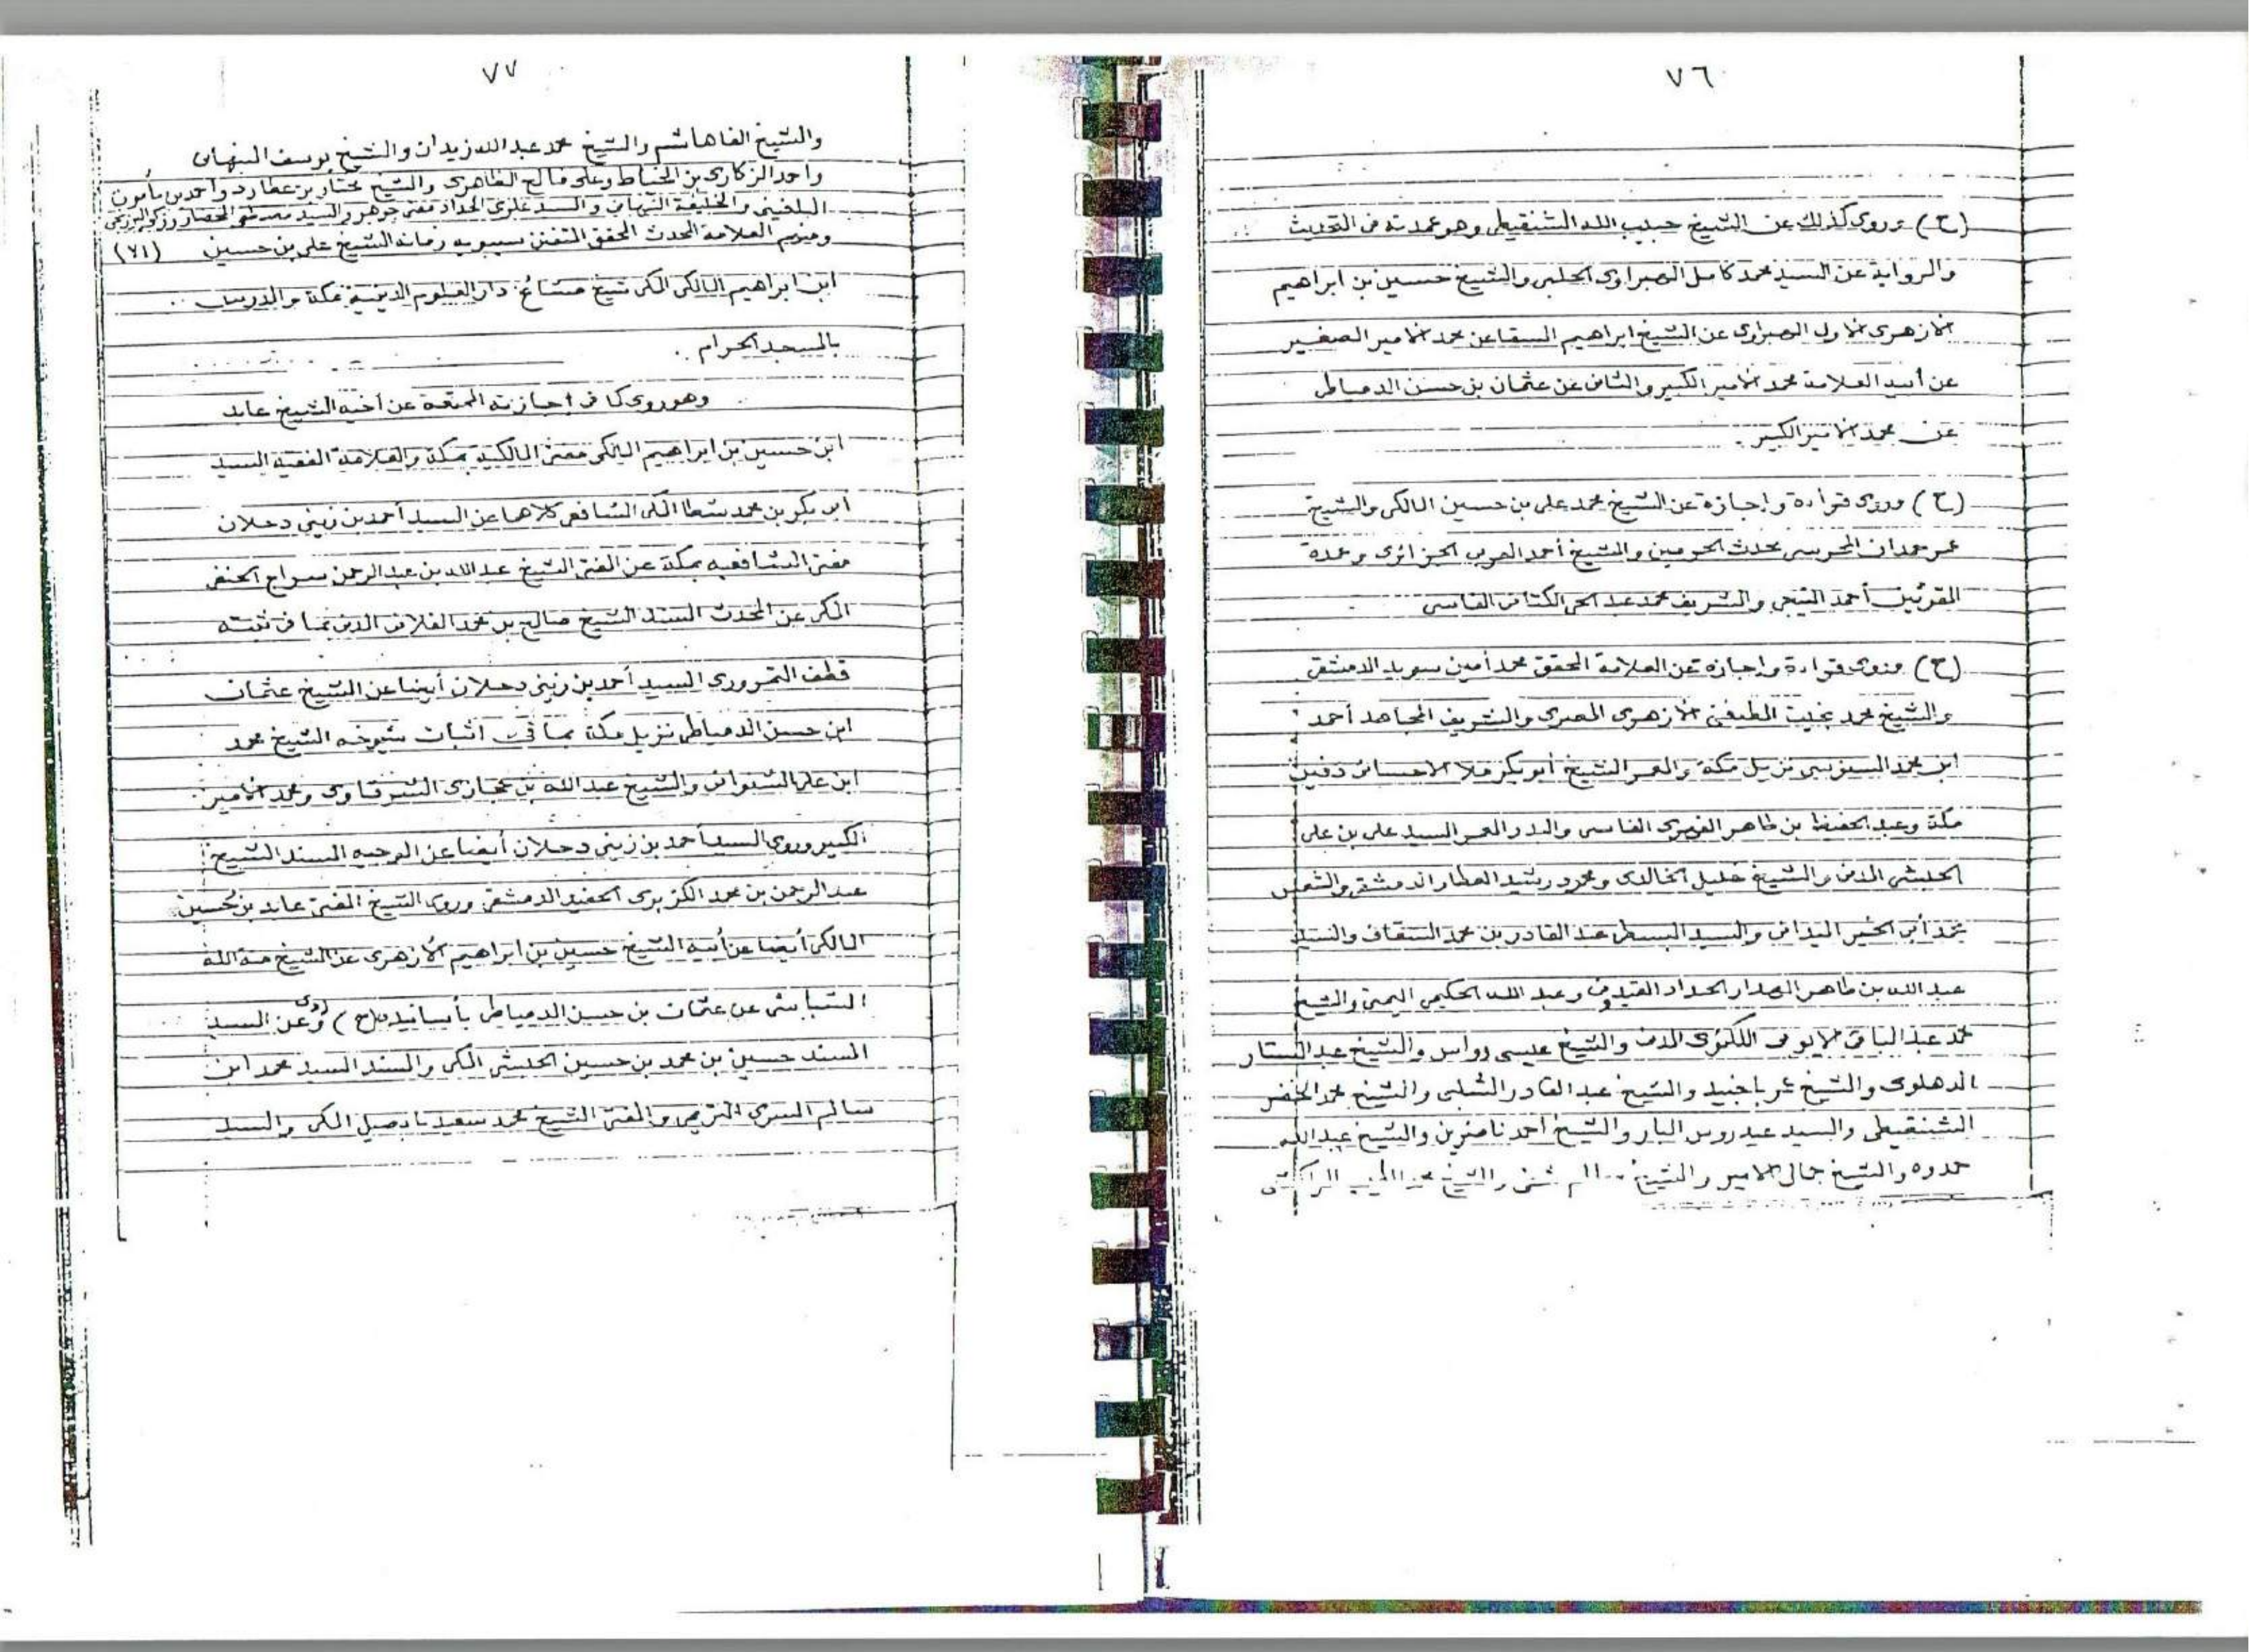 ٧٦
(ح) وروى كذلك عن الشيخ حبيب الله الشنقيطي وهو عمدته في التحديث
والرواية عن السيد محمد كامل الهبراوي الحلبي والشيخ حسين بن ابراهيم
الازهري الاول الهبراوي عن الشيخ ابراهيم السقا عن محمد الامير الصغير
عن أبيه العلامة محمد الامير الكبير والثاني عن عثمان بن حسن الدمياطي
عن محمد الامير الكبير .
(ح) وروى قراءة وإجازة عن الشيخ محمد علي بن حسين المالكي والشيخ
عمر حمدان المحرسي محدث الحرمين والشيخ أحمد العربي الجزائري وعمدة
المقرئين أحمد التيجي والشريف محمد عبد الحي الكتاني الفاسي
(ح) ويروى قراءة واجازة عن العلامة المحقق محمد أمين سويد الدمشقي
والشيخ محمد بخيت المطيعي الازهري المصري والشريف المجاهد أحمد
ابن محمد السنوسي نزيل مكة والمعمر الشيخ أبو بكر ملا الاحسائي دفين
مكة وعبد الحفيظ بن طاهر الفهري الفاسي والبدر المعمر السيد علي بن علي
الحبشي المدني والشيخ خليل الخالدي ومحمود رشيد العطار الدمشقي والشمس
محمد أبي الخير الميداني والسيد عبد القادر بن محمد السقاف والسيد
عبد الله بن طاهر الهدار الحداد القيدوني وعبد الله الحكيمي اليمني والشيخ
محمد عبد الباقي الايوبي اللكنوي المدني والشيخ عيسى رواس والشيخ عبد الستار
الدهلوي والشيخ عمر باجنيد والشيخ عبد القادر الشلبي والشيخ محمد الخضر
الشنقيطي والسيد عيدروس البار والشيخ احمد ناضرين والشيخ عبد الله
حمدوه والشيخ جمال الامير والشيخ سالم شفي والشيخ محمد الطيب المراكشي
٧٧
والشيخ الفاهاشم والشيخ محمد عبد الله زيدان والشيخ يوسف النبهاني
واحمد الزكاري بن الخياط وعلى فالح الظاهري والشيخ مختار بن عطارد واحمد بن مأمون
البلغيثي والخليفة النبهاني والسيد علوي الحداد مفتي جوهر والسيد مصطفى المحضار وزكي البرزنجي
ومنهم العلامة المحدث المحقق المتفنن سيبويه زمانه الشيخ علي بن حسين (٧١)
ابن ابراهيم المالكي المكي شيخ مشائخ دار العلوم الدينية بمكة والمدرس
بالمسجد الحرام .
وهو روى كما في إجازته الممتعة عن أخيه الشيخ عابد
ابن حسين بن ابراهيم المالكي مفتي المالكية بمكة والعلامة الفقيه السيد
ابو بكر بن محمد شطا المكي الشافعي كلاهما عن السيد أحمد بن زيني دحلان
مفتي الشافعيه بمكة عن المفتي الشيخ عبد الله بن عبد الرحمن سراج الحنفي
المكي عن المحدث المسند الشيخ صالح بن محمد الفلاني المدني بما في ثبته
قطف الثمر وروى السيد أحمد بن زيني دحلان أيضا عن الشيخ عثمان
ابن حسن الدمياطي نزيل مكة بما في اثبات شيوخه الشيخ محمد
ابن علي الشنواني والشيخ عبد الله بن حجازي الشرقاوي ومحمد الأمير
الكبير وروى السيد أحمد بن زيني دحلان أيضا عن الوجيه المسند الشيخ
عبد الرحمن بن محمد الكزبري الحفيد الدمشقي وروى الشيخ المفتي عابد بن حسين
المالكي أيضا عن أبيه الشيخ حسين بن ابراهيم الأزهري عن الشيخ منة الله
الشباسي عن عثمان بن حسن الدمياطي بأسانيده (ح) وروى عن السيد
المسند حسين بن محمد بن حسين الحبشي المكي والمسند السيد محمد ابن
سالم السري التريمي والمفتي الشيخ محمد سعيد بابصيل المكي والسيد